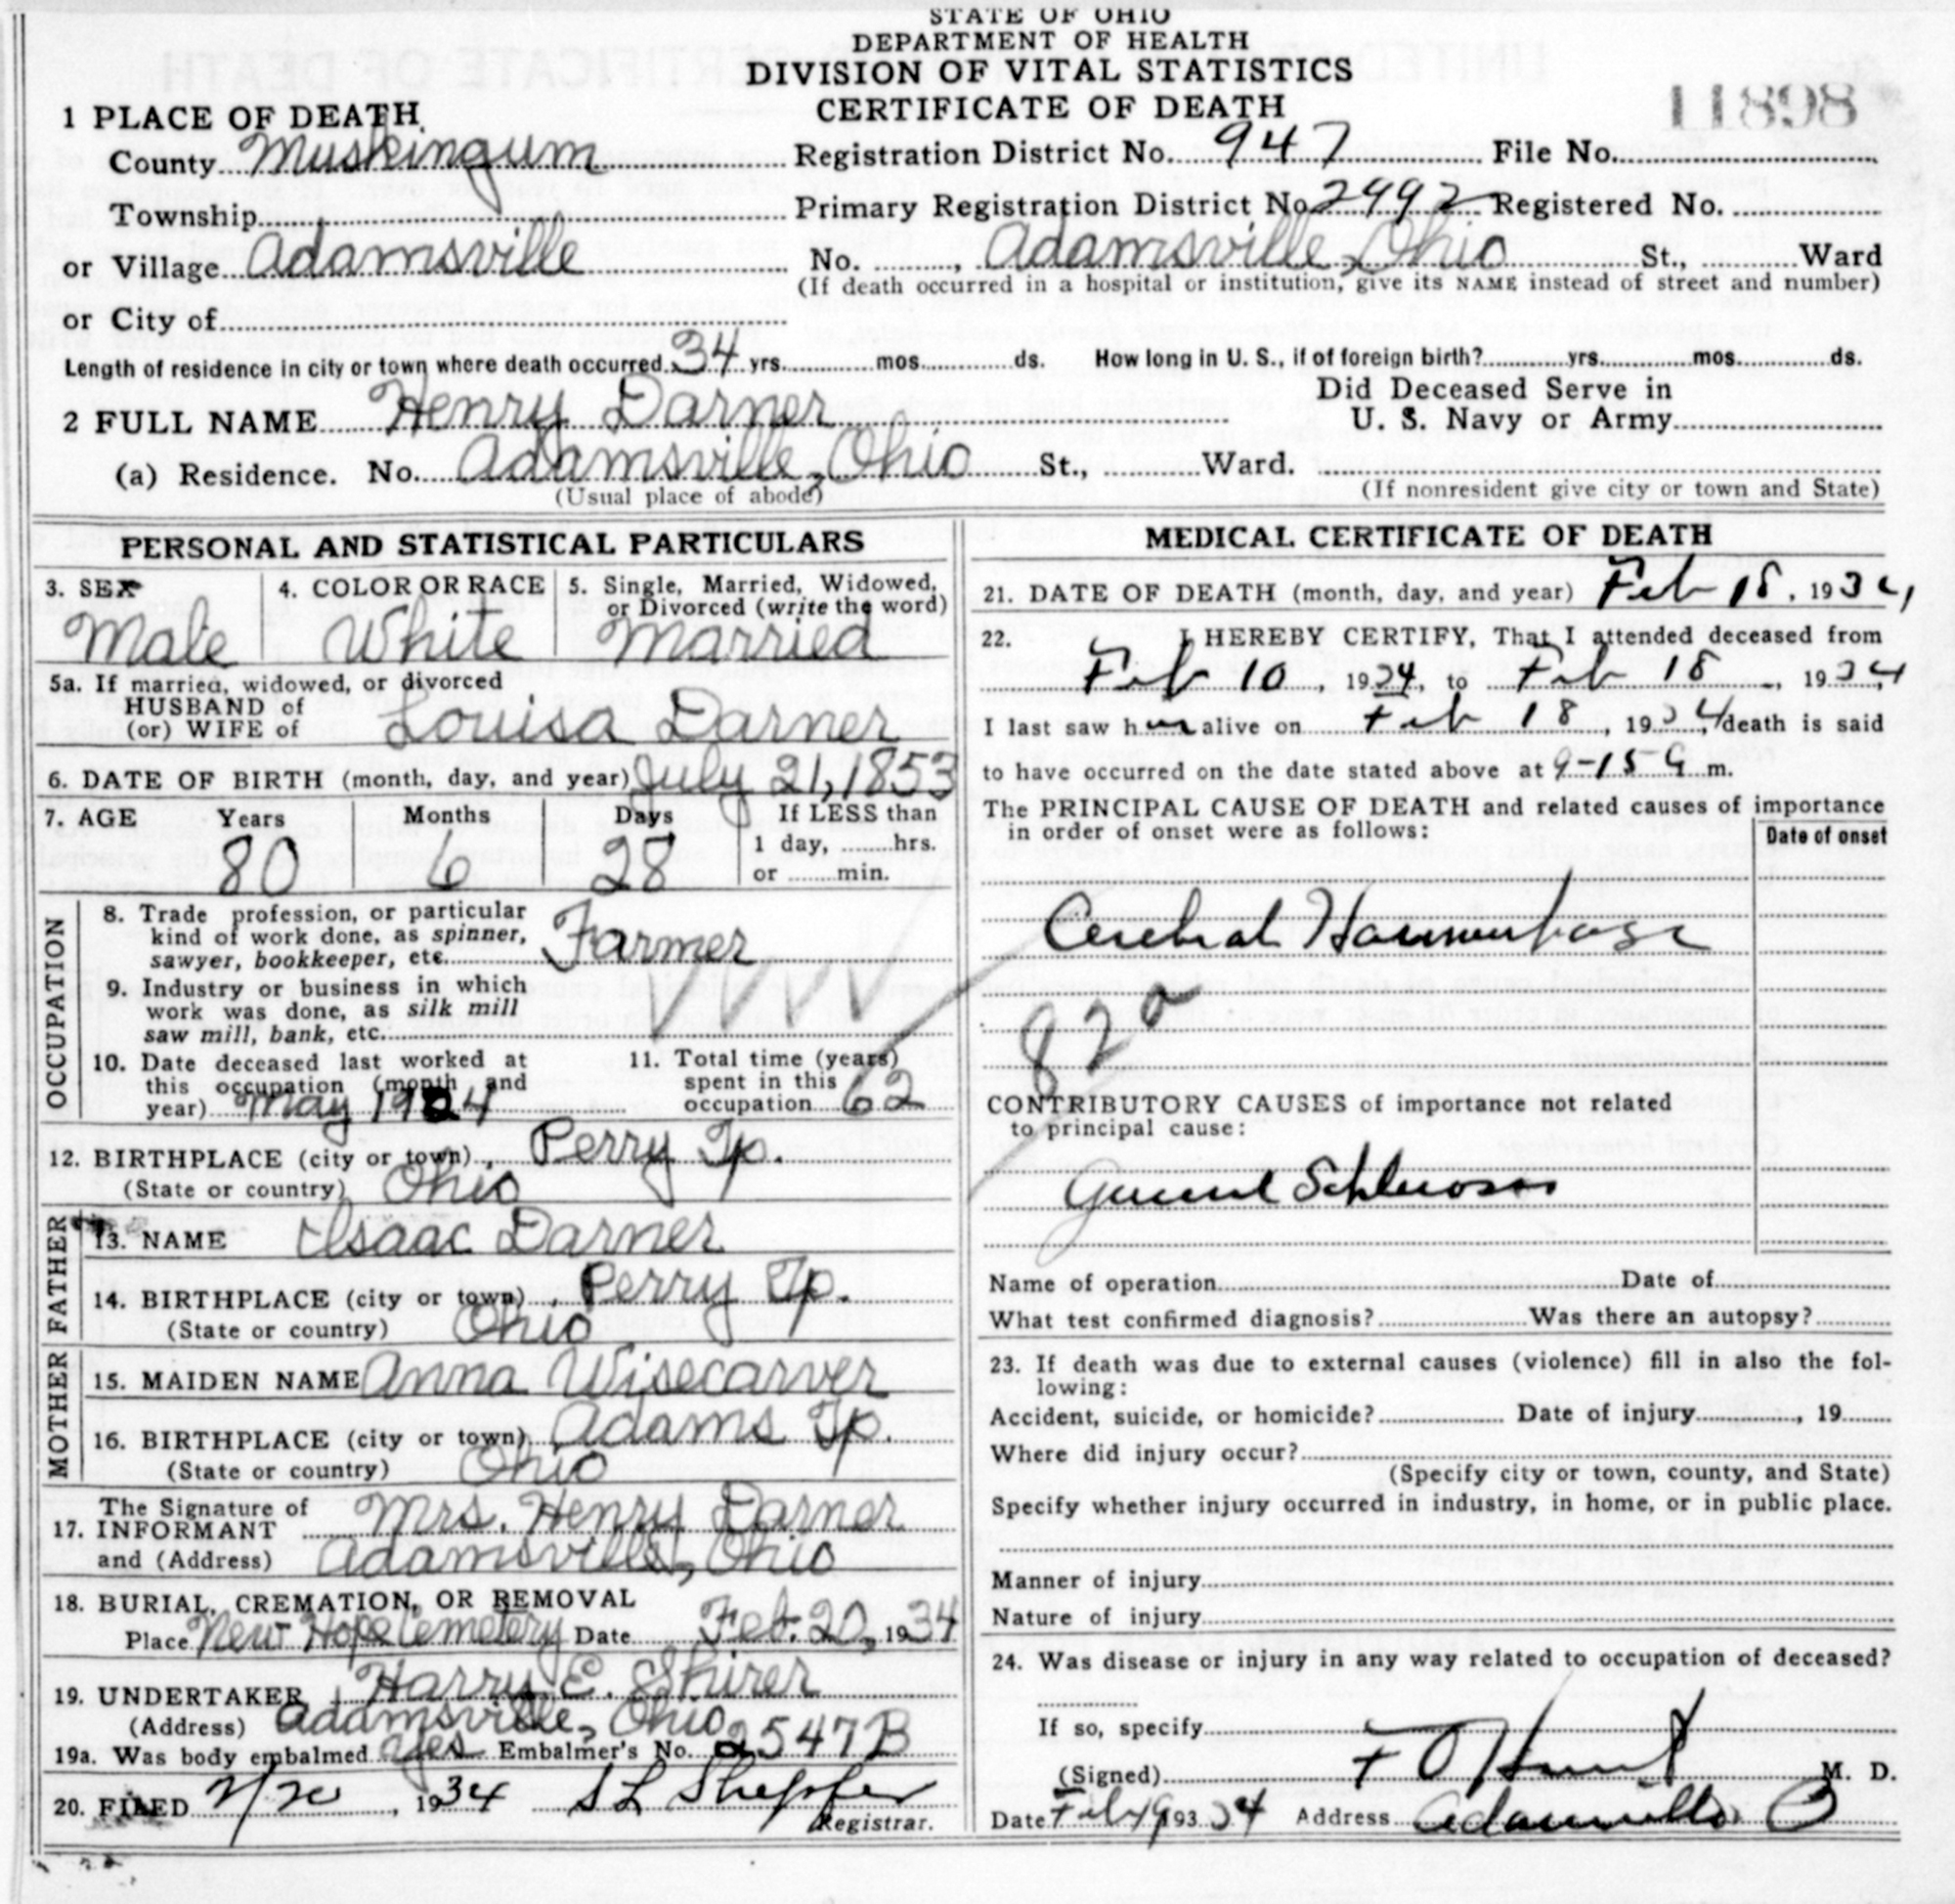 STATE OF OHIO
DEPARTMENT OF HEALTH
DIVISION OF VITAL STATISTICS
CERTIFICATE OF DEATH
11898
1 PLACE OF DEATH
County Muskingum Registration District No. 947 File No.
Township Primary Registration District No. 2992 Registered No.
or Village Adamsville No. , Adamsville, Ohio St., Ward
(If death occurred in a hospital or institution, give its NAME instead of street and number)
or City of
Length of residence in city or town where death occurred 34 yrs. mos. ds. How long in U. S., if of foreign birth? yrs. mos. ds.
2 FULL NAME Henry Darner Did Deceased Serve in
U. S. Navy or Army
(a) Residence. No. Adamsville, Ohio St., Ward.
(Usual place of abode) (If nonresident give city or town and State)
PERSONAL AND STATISTICAL PARTICULARS
3. SEX 4. COLOR OR RACE 5. Single, Married, Widowed,
or Divorced (write the word)
Male White Married
5a. If married, widowed, or divorced
HUSBAND of
(or) WIFE of Louisa Darner
6. DATE OF BIRTH (month, day, and year) July 21, 1853
7. AGE Years Months Days If LESS than
80 6 28 1 day, hrs.
or min.
OCCUPATION
8. Trade profession, or particular
kind of work done, as spinner,
sawyer, bookkeeper, etc. Farmer
9. Industry or business in which
work was done, as silk mill
saw mill, bank, etc.
10. Date deceased last worked at
this occupation (month and
year) May 1924
11. Total time (years)
spent in this
occupation 62
12. BIRTHPLACE (city or town) Perry Tp.
(State or country) Ohio
FATHER
13. NAME Isaac Darner
14. BIRTHPLACE (city or town) Perry Tp.
(State or country) Ohio
MOTHER
15. MAIDEN NAME Anna Wisecarver
16. BIRTHPLACE (city or town) Adams Tp.
(State or country) Ohio
The Signature of
17. INFORMANT Mrs. Henry Darner
and (Address) Adamsville, Ohio
18. BURIAL, CREMATION, OR REMOVAL
Place New Hope Cemetery Date Feb. 20, 1934
19. UNDERTAKER Harry E. Shirer
(Address) Adamsville, Ohio
19a. Was body embalmed Yes Embalmer's No. 2547B
20. FILED 2/20, 1934 S L Shepfer
Registrar.
MEDICAL CERTIFICATE OF DEATH
21. DATE OF DEATH (month, day, and year) Feb 18, 1934
22. I HEREBY CERTIFY, That I attended deceased from
Feb 10, 1934, to Feb 18, 1934
I last saw him alive on Feb 18, 1934 death is said
to have occurred on the date stated above at 9-15 a m.
The PRINCIPAL CAUSE OF DEATH and related causes of importance
in order of onset were as follows:
Date of onset
Cerebral Haemorrhage
82a
CONTRIBUTORY CAUSES of importance not related
to principal cause:
General Schlerosis
Name of operation Date of
What test confirmed diagnosis? Was there an autopsy?
23. If death was due to external causes (violence) fill in also the fol-
lowing:
Accident, suicide, or homicide? Date of injury , 19
Where did injury occur?
(Specify city or town, county, and State)
Specify whether injury occurred in industry, in home, or in public place.
Manner of injury
Nature of injury
24. Was disease or injury in any way related to occupation of deceased?
If so, specify
(Signed) M. D.
Date Feb 19 1934 Address Adamsville O